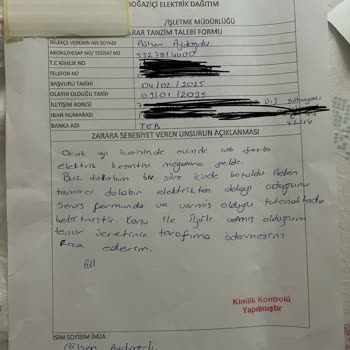 BOĞAZİÇİ ELEKTRİK DAĞITIM
/İŞLETME MÜDÜRLÜĞÜ
ZARAR TANZİM TALEBİ FORMU
DİLEKÇE VERENİN ADI SOYADI Gülsen Aydoğdu
ABONE/HESAP NO/ TESİSAT NO
T.C KİMLİK NO
TELEFON NO
BAŞVURU TARİHİ 04/02/2025
OLAYIN OLDUĞU TARİH 09/01/2025
İLETİŞİM ADRESİ
IBAN NUMARASI
BANKA ADI TEB
ZARARA SEBEBİYET VEREN UNSURUN AÇIKLANMASI
Ocak ayı içerisinde evimde çok fazla
elektrik kesintisi meydana geldi.
Buz dolabım bir süre içinde bozuldu Gelen
tamirci dolabın elektrikten dolayı olduğunu
Servis formunda ve vermiş olduğu tutanakta da
belirtmiştir. Konu ile ilgili vermiş olduğum
tamir ücretinin tarafıma ödenmesini
Rica ederim.
Kimlik Kontrolü
Yapılmıştır
İSİM SOYİSİM İMZA
Gülsen Aydoğdu